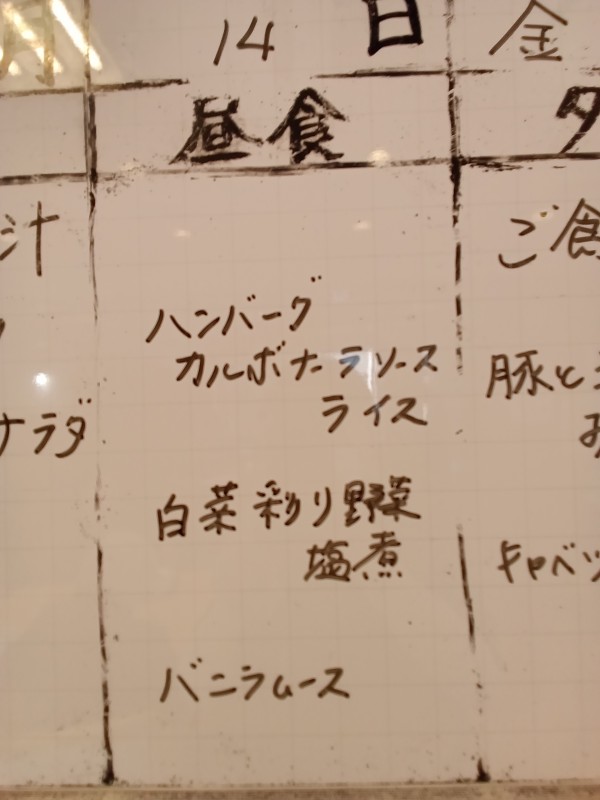 月 14 日 金
昼食
汁
ナラダ
ハンバーグ
カルボナーラソース
ライス
白菜彩り野菜
塩煮
バニラムース
夕
ご食
豚と
キャベツ